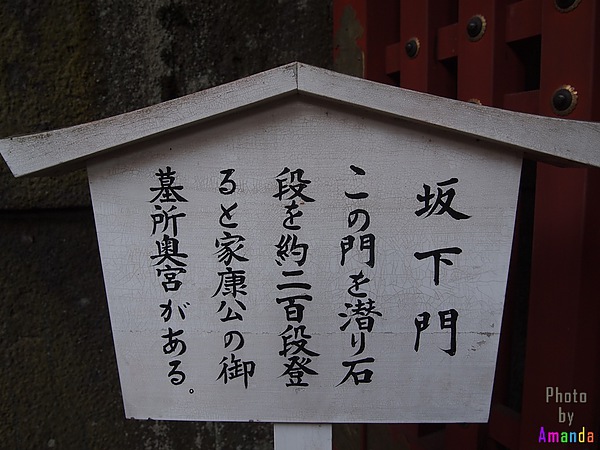 坂下門
この門を潜り石
段を約二百段登
ると家康公の御
墓所奥宮がある。
Photo
by
Amanda